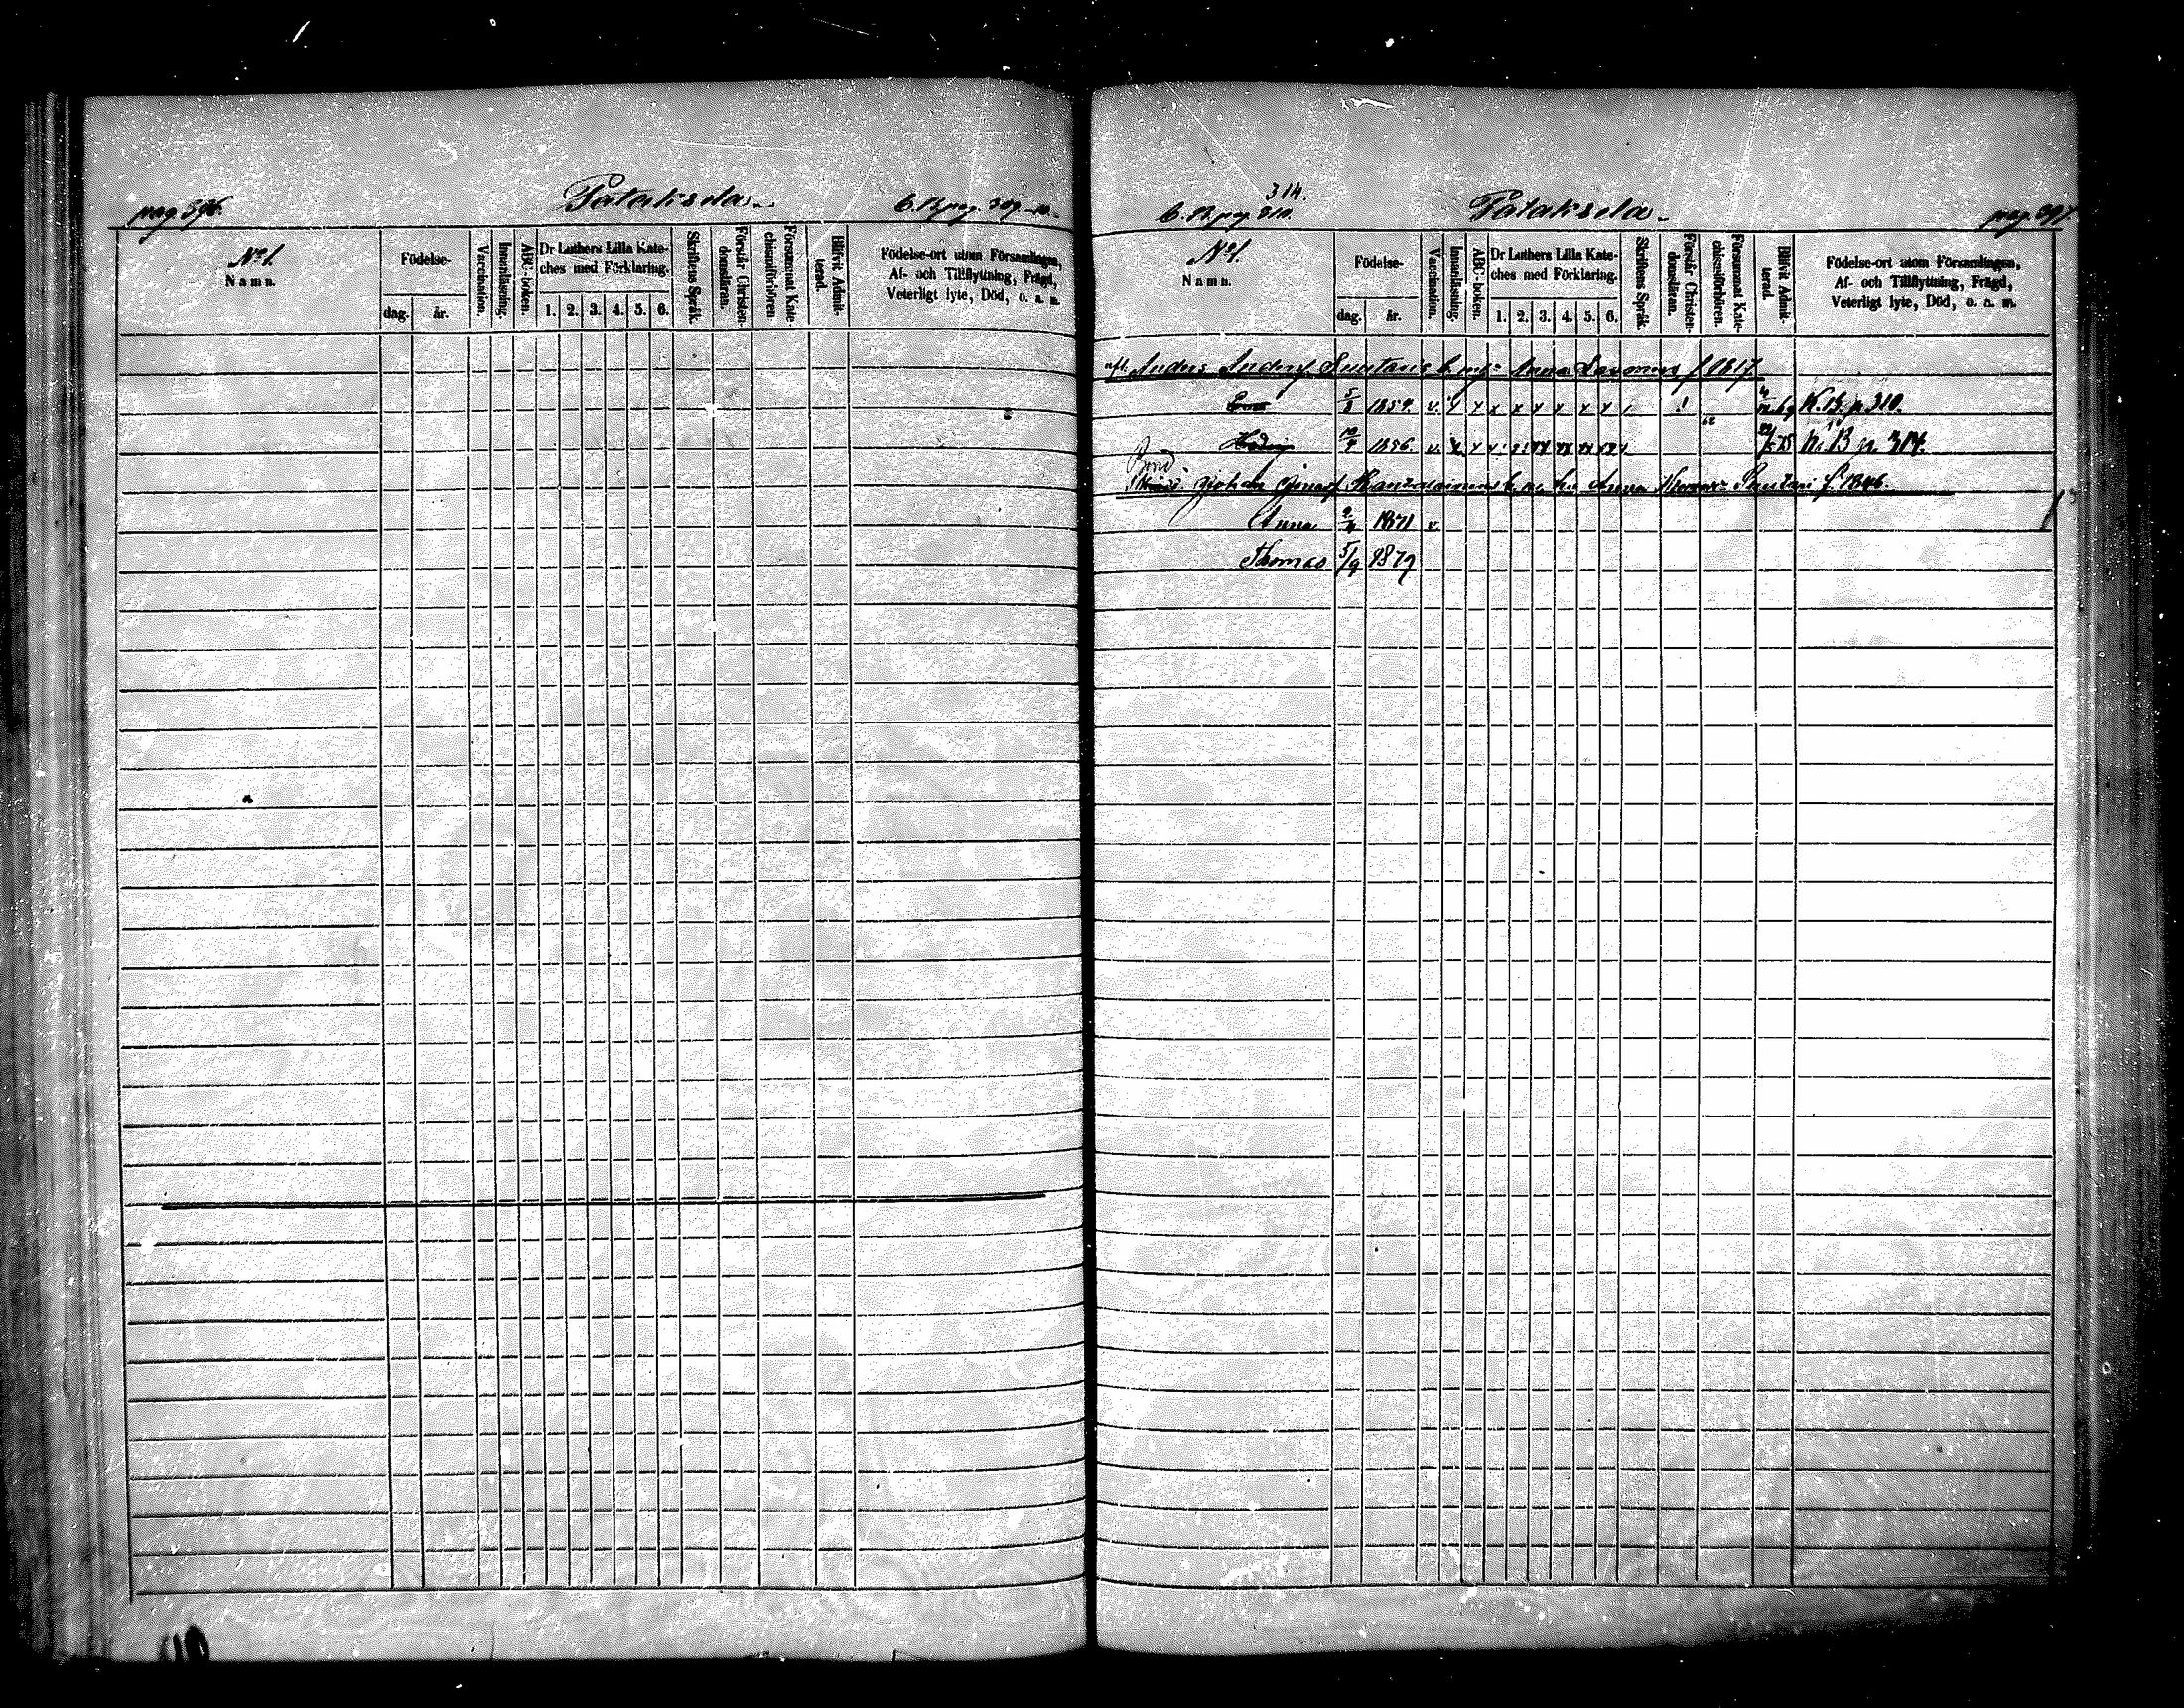 pag. 396.
Pataksela
C. B. pag. 309-10.
No 1.
Namn.
Födelse-
dag.
år.
Vaccination.
Innanläsning.
ABC-boken.
Dr Luthers Lilla Kate-
ches med Förklaring.
1. 2. 3. 4. 5. 6.
Skriftens Språk.
Förstår Christen-
domsläran.
Försummat Kate-
chismiförhören.
Blifvit Admit-
terad.
Födelse-ort utom Församlingen,
Af- och Tillflyttning, Frägd,
Veterligt lyte, Död, o. a. m.
314.
C. B. pag. 310.
Pataksela
pag. 397
No 1.
Namn.
Födelse-
dag.
år.
Vaccination.
Innanläsning.
ABC-boken.
Dr Luthers Lilla Kate-
ches med Förklaring.
1. 2. 3. 4. 5. 6.
Skriftens Språk.
Förstår Christen-
domsläran.
Försummat Kate-
chismiförhören.
Blifvit Admit-
terad.
Födelse-ort utom Församlingen,
Af- och Tillflyttning, Frägd,
Veterligt lyte, Död, o. a. m.
Anders Andersf. Anna f. 1817
1854. v. 69 K. B. p. 310.
1856. v. 75 K. B p. 314.
Johan Anna f. 1846.
Anna 1871 v.
Thomas 5/9 1879